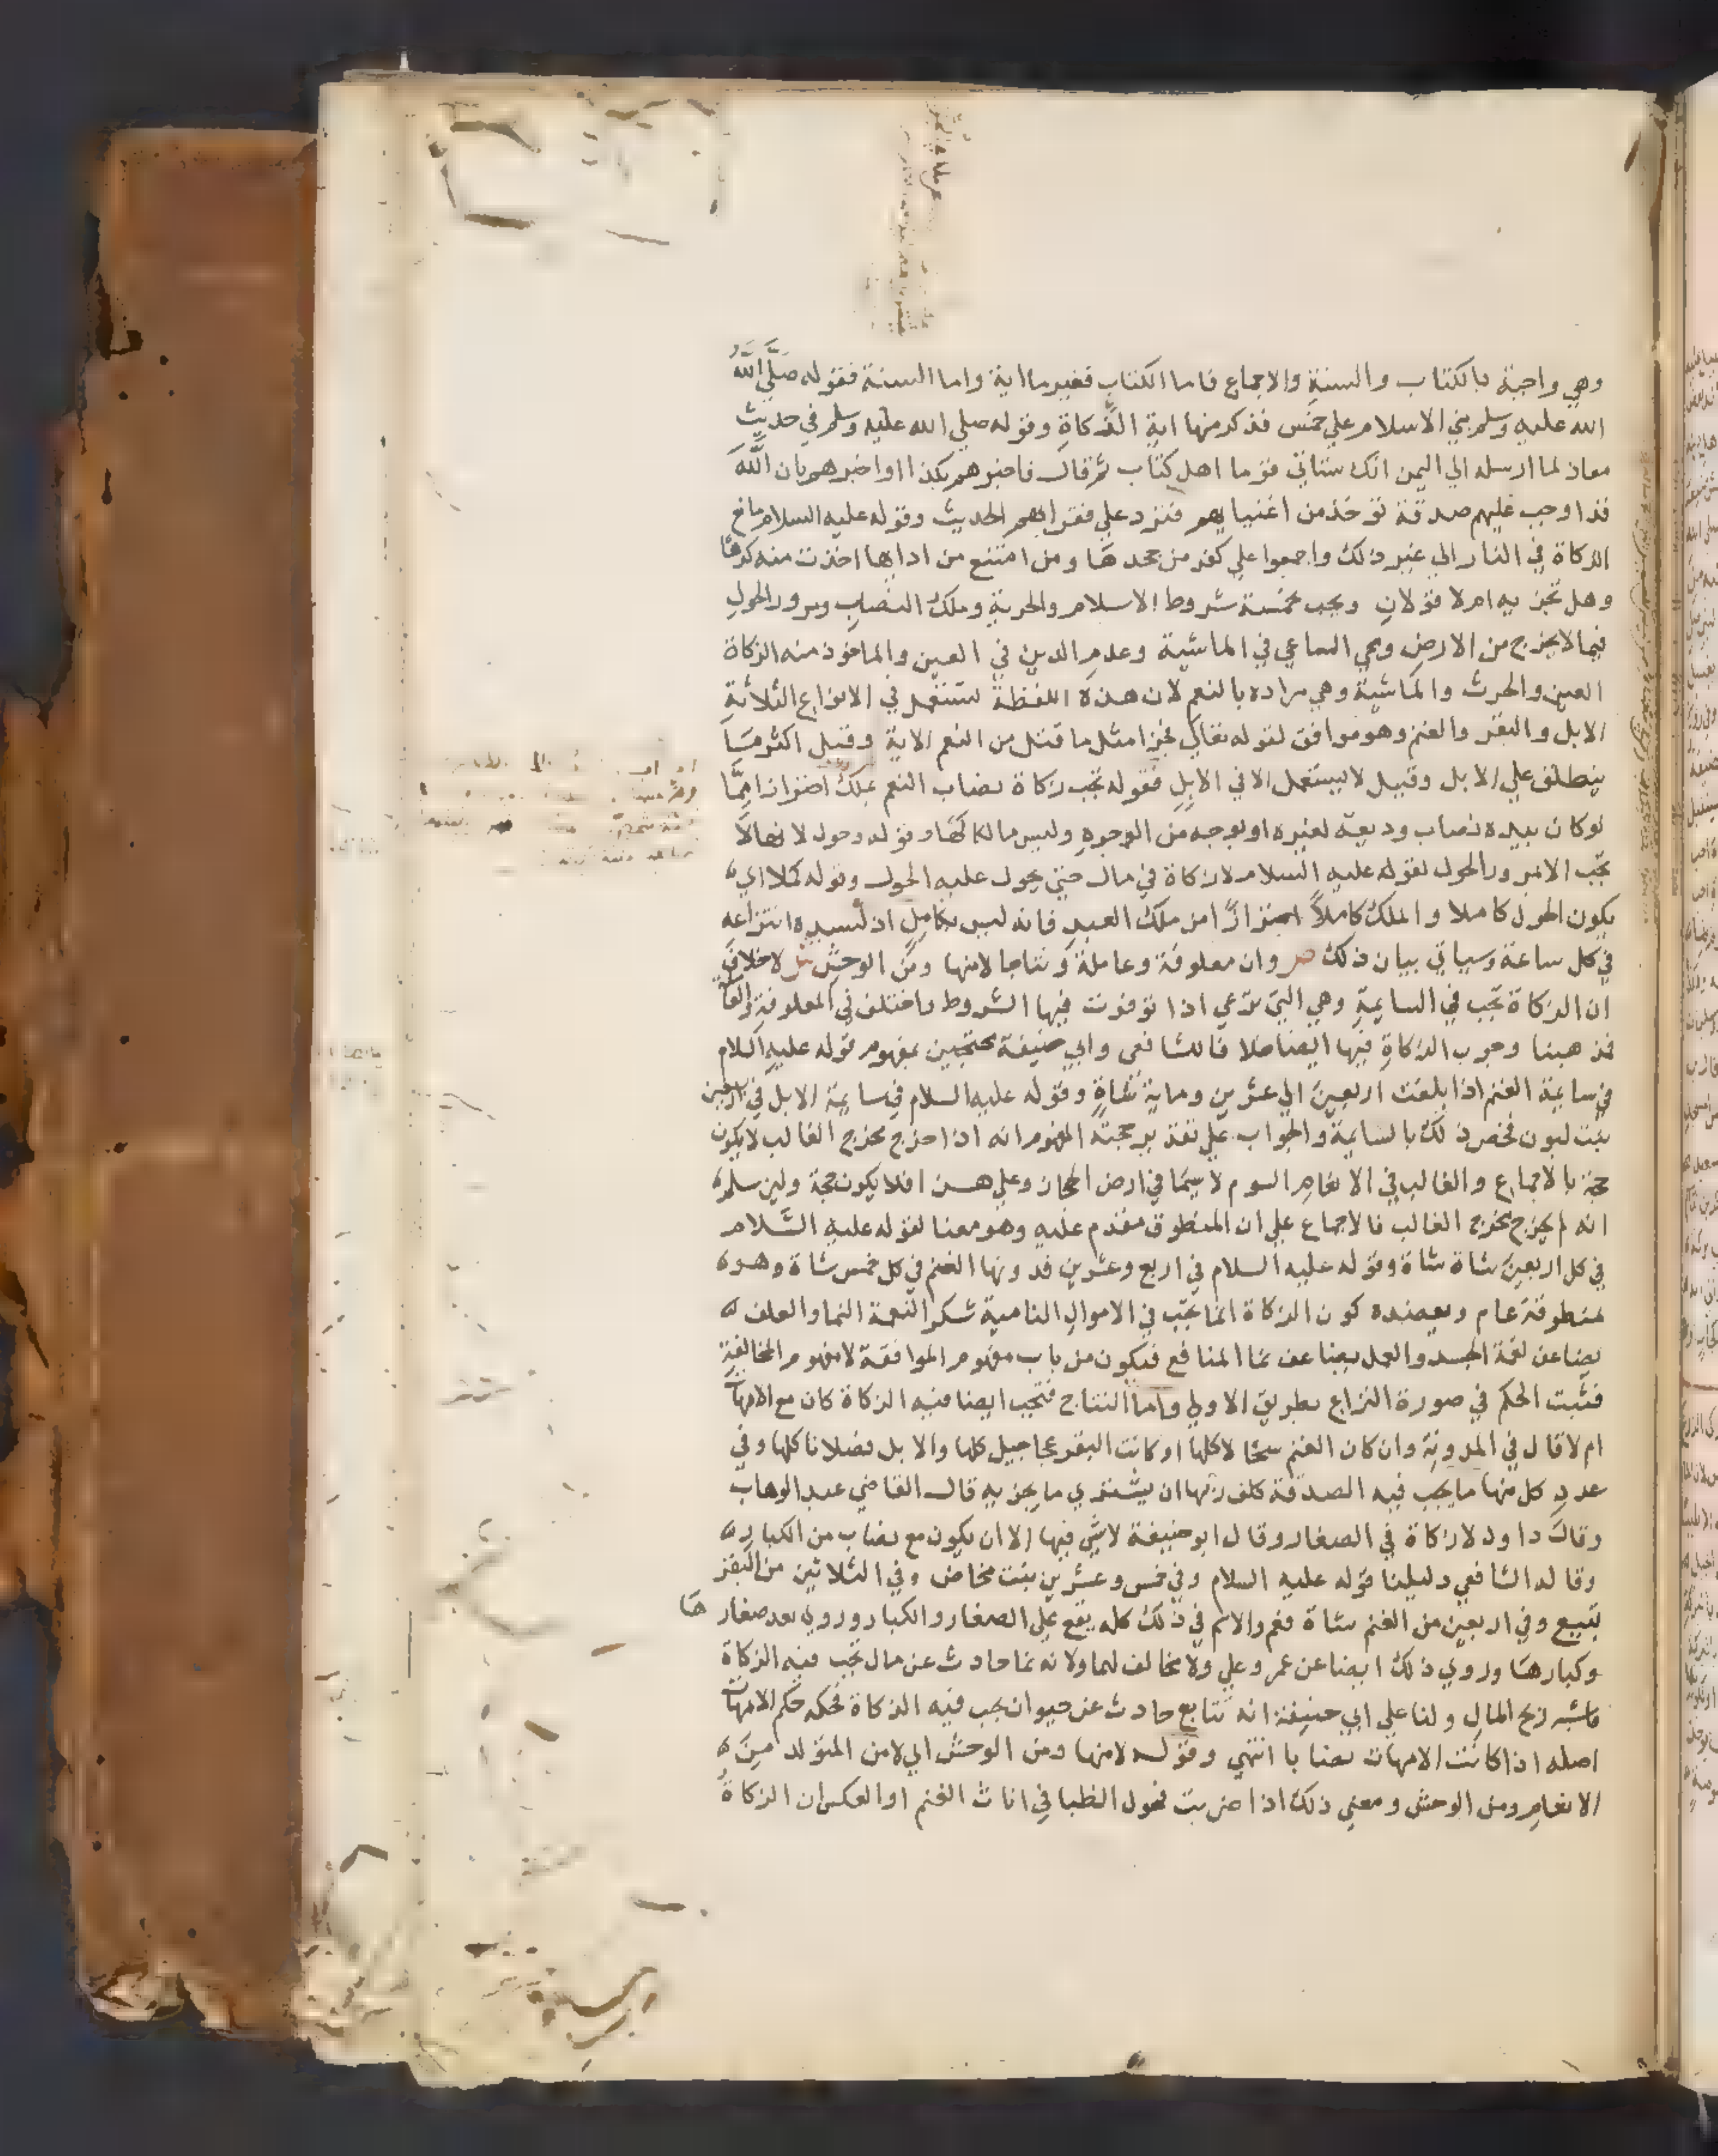 وهي واجبة بالكتاب والسنة والاجماع فاما الكتاب فغير ما اية واما السنة فقوله صلى الله
الله عليه وسلم بني الاسلام علي خمس فذكر منها ايتا الزكاة وقوله صلي الله عليه وسلم في حديث
معاذ لما ارسله الي اليمن انك ستاتي قوما اهل كتاب ثم قال فاخبرهم بكذا او اخبرهم بان الله
قد اوجب عليهم صدقة توخذ من اغنيايهم فترد علي فقرايهم الحديث وقوله عليه السلام مانع
الزكاة في النار الي غير ذلك واجمعوا علي كفر من جحدها ومن امتنع من ادايها اخذت منه كرها
وهل تجزيه ام لا قولان وتجب بخمسة شروط الاسلام والحرية وملك النصاب ومرور الحول
فيما لا يخرج من الارض ومجي الساعي في الماشية وعدم الدين في العين والماخوذ منه الزكاة
العين والحرث والماشية وهي مراده بالنعم لان هذه اللفظة تستعمل في الانواع الثلاثة
الابل والبقر والغنم وهو موافق لقوله تعالي فجزا مثل ما قتل من النعم الاية وقيل اكثر مسا
ينطلق علي الابل وقيل لا يستعمل الا في الابل فقوله تجب زكاة نصاب النعم بملك احترازا مما
لو كان بيده نصاب وديعة لغيره او بوجه من الوجوه وليس مالكا لها وقوله وحول لانها لا
تجب الا بمرور الحول لقوله عليه السلام لا زكاة في مال حتي يحول عليه الحول وقوله كملا اي
يكون الحول كاملا والملك كاملا احترازا من ملك العبد فانه ليس بكامل اذ لسيده انتزاعه
في كل ساعة وسياتي بيان ذلك ص وان معلوفة وعاملة ونتاجا لا منها ومن الوحش ش لا خلاف
ان الزكاة تجب في السايمة وهي التي ترعي اذا توفرت فيها الشروط واختلف في المعلوفة والعا
فمذهبنا وجوب الزكاة فيها ايضا خلافا للشافعي وابي حنيفة محتجين بمفهوم قوله عليه السلام
في سايمة الغنم اذا بلغت اربعين الي عشرين وماية شاة وقوله عليه السلام في سايمة الابل في اربعين
بنت لبون فخص ذلك بالسايمة والجواب علي تقدير حجته المفهوم انه اذا خرج مخرج الغالب لا يكون
حجة بالاجماع والغالب في الانعام السوم لا سيما في ارض الحجاز وعلي هذا فلا يكون حجة ولين سلم
انه لم يخرج مخرج الغالب فالاجماع علي ان المنطوق مقدم عليه وهو معنا لقوله عليه السلام
في كل اربعين شاة شاة وقوله عليه السلام في اربع وعشرين فدونها الغنم في كل خمس شاة وهو
بمنطوقه عام ويعضده كون الزكاة انما تجب في الاموال النامية شكرا لنعمة النما والعلف
يضاعف لنعمة الجسد والعمل يضاعف نما المنافع فيكون من باب مفهوم الموافقة لا مفهوم المخالفة
فثبت الحكم في صورة النزاع بطريق الاولي واما النتاج فتجب ايضا فيه الزكاة كان مع الامهات
ام لا قال في المدونة وان كان الغنم سخالا كلها او كانت البقر عجاجيل كلها والابل فصلانا كلها وفي
عدد كل منها ما يجب فيه الصدقة كلف ربها ان يشتري ما يجزيه قال القاضي عبد الوهاب
وقال داود لا زكاة في الصغار وقال ابو حنيفة لا شي فيها الا ان يكون مع نصاب من الكبار
وقاله الشافعي دليلنا قوله عليه السلام وفي خمس وعشرين بنت مخاض وفي الثلاثين من البقر
تبيع وفي اربعين من الغنم شاة فعم والاسم في ذلك كله يقع علي الصغار والكبار وروي بعد صغار ها
وكبارها وروي ذلك ايضا عن عمر وعلي ولا مخالف لهما ولانه نما حادث عن مال تجب فيه الزكاة
فاشبه ربح المال ولنا علي ابي حنيفة انه نتايج حادث عن حيوان تجب فيه الزكاة فحكمه حكم الامهات
اصله اذا كانت الامهات نصابا انتهي وقوله لا منها ومن الوحش اي لا من المتولد من
الانعام ومن الوحش ومعني ذلك اذا ضربت فحول الظبا في اناث الغنم او العكس ان الزكاة